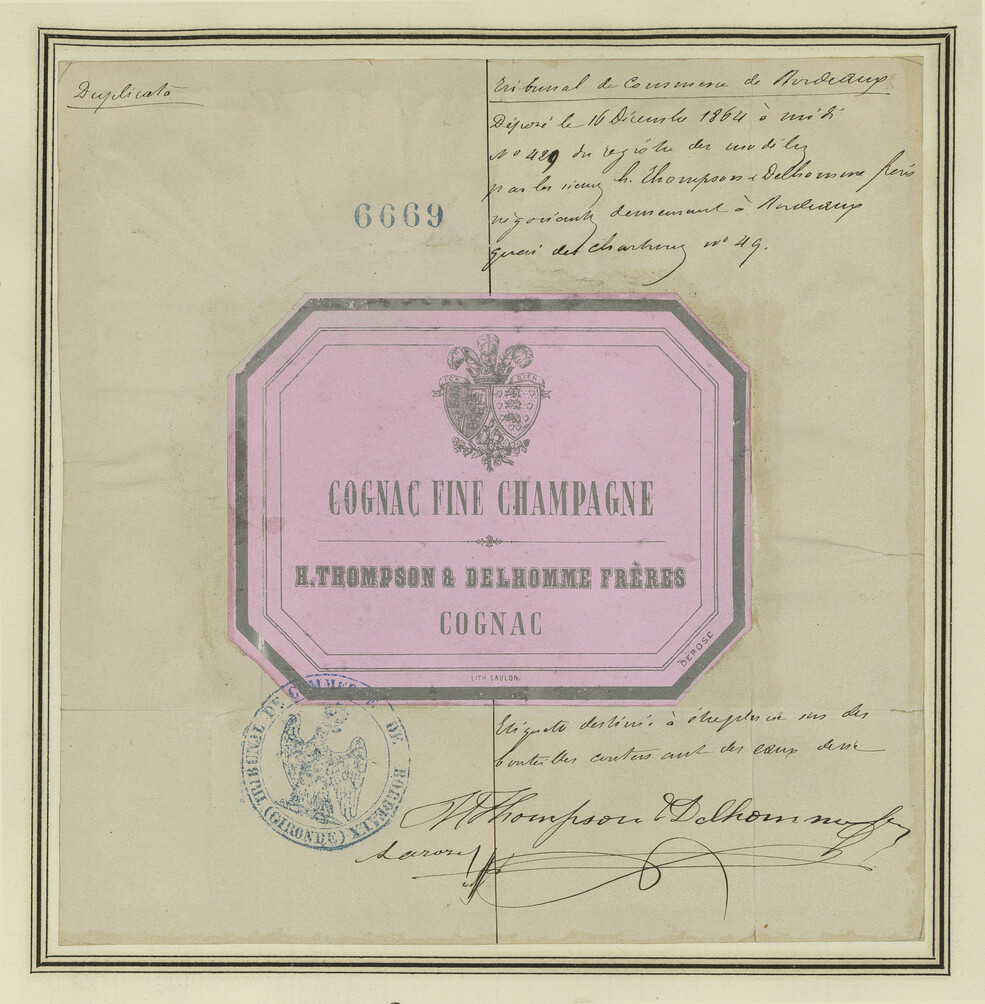 Duplicata
Tribunal de Commerce de Bordeaux
Déposé le 16 Décembre 1864 à midi
No 429 du registre des modèles
par les sieurs h. Thompson & Delhomme frères
négociants demeurant à Bordeaux
quai des chartrons no 49.
6669
ICH DIEN
COGNAC FINE CHAMPAGNE
H. THOMPSON & DELHOMME FRÈRES
COGNAC
DÉPOSÉ
LITH. GAULON
TRIBUNAL DE COMMERCE DE BORDEAUX
(GIRONDE)
Etiquette destinée à être placée sur des
bouteilles contenant des eaux de vie
H Thompson & Delhomme